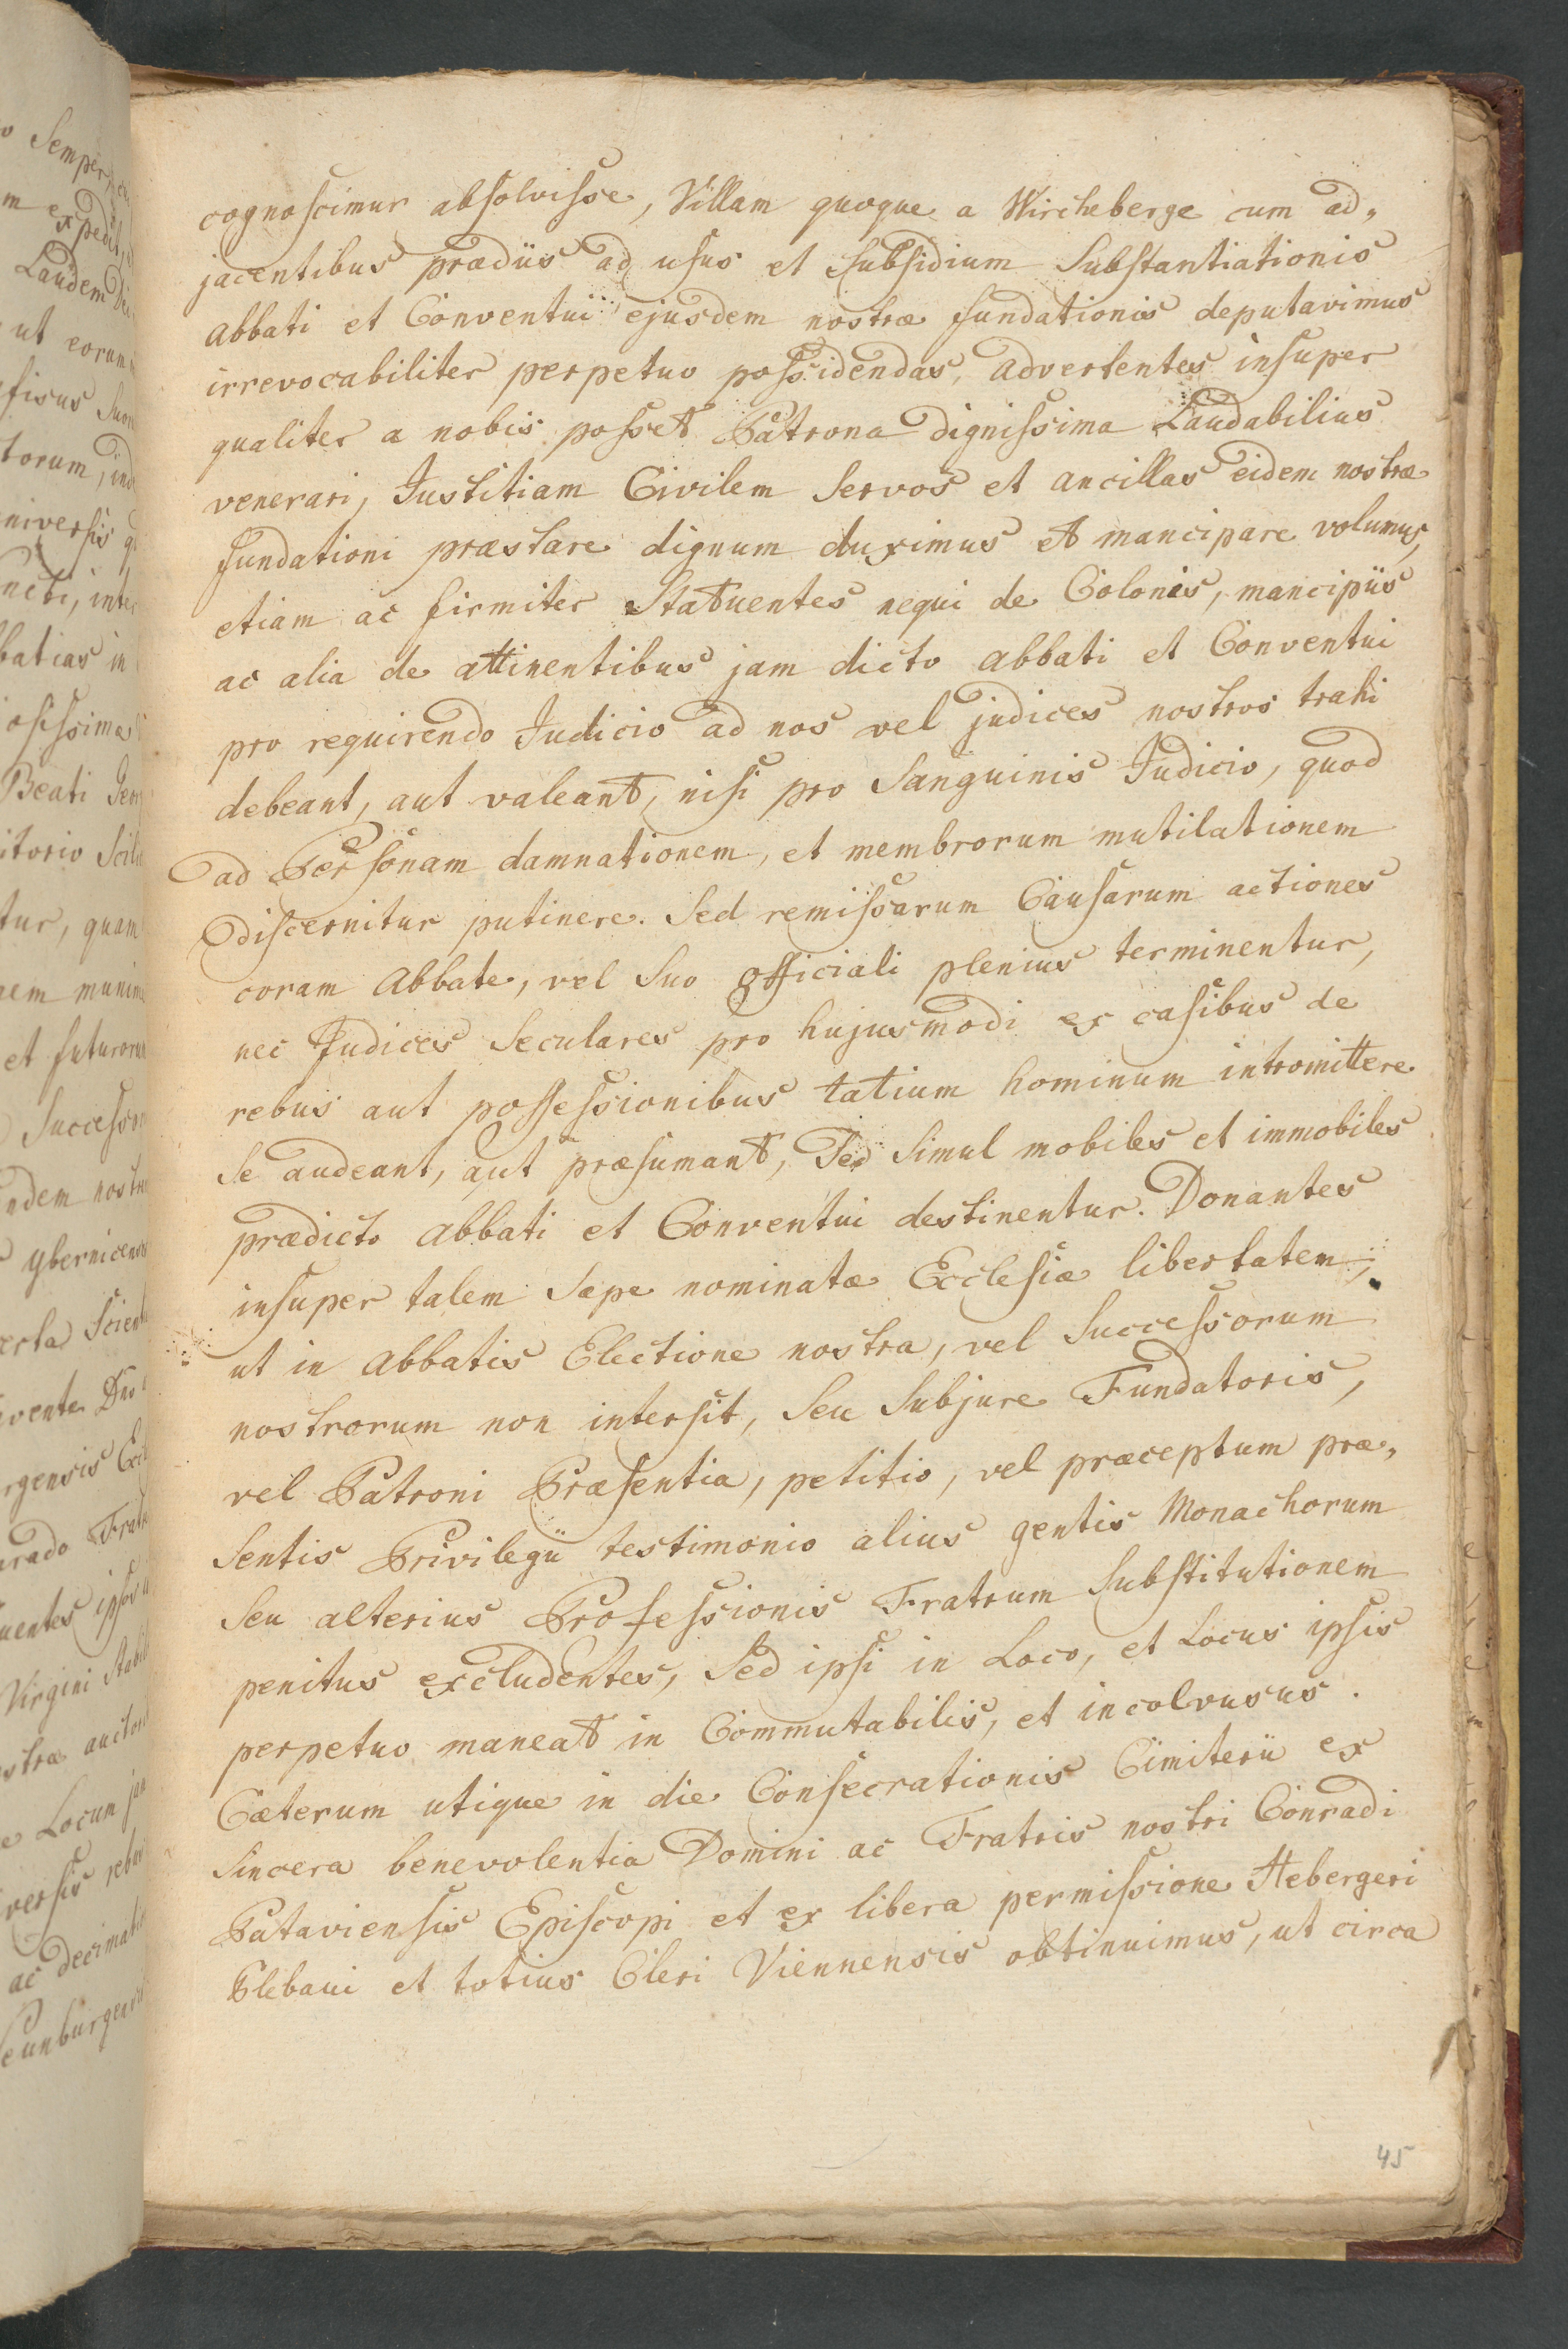 cognoscimur absolvisse, Villam quoque a Wircheberge cum ad„
jacentibus prædiis ad usus et subsidium Substantiationis
abbati et Conventui ejusdem nostræ fundationis deputavimus
irrevocabiliter perpetuo possidendas, advertentes insuper
qualiter a nobis posset Patrona dignissima Laudabilius
venerari, Justitiam Civilem servos et ancillas eidem nostræ
fundationi præstare dignum duximus et mancipare volumus,
etiam ac firmiter Statuentes nequi de Colonis, mancipiis
ac alia de attinentibus jam dicto abbati et Conventui
pro requirendo Judicio ad nos vel judices nostros trahi
debeant, aut valeant, nisi pro Sanguinis Judicio, quod
ad Personam damnationem, et membrorum mutilationem
discernitur putinere. Sed remissarum Causarum actiones
coram Abbate, vel suo officiali plenius terminentur,
nec Judices Seculares pro hujusmodi ex casibus de
rebus aut possessionibus tatium hominum intromittere
se audeant, aut præsumant, sed simul mobiles et immobiles
prædicto abbati et Conventui destinentur. Donantes
insuper talem sæpe nominatæ Ecclesiæ libertatem,
ut in abbatis Electione nostra, vel Successorum
nostrorum non intersit, seu subjure Fundatoris,
vel Patroni Præsentia, petitio, vel præceptum præ„
sentis Privilegii testimonio alius gentis Monachorum
seu alterius Professionis Fratrum Substitutionem
penitus excludentes, sed ipsi in Loco, et Locus ipsis
perpetuo maneat in Commutabilis, et incolvusus.
Cæterum utique in die Consecrationis Cimiterii ex
sincera benevolentia Domini ac Fratris nostri Conradi
Pataviensis Episcopi et ex libera permissione Hebergeri
Plebani et totius Cleri Viennensis obtinuimus, ut circa
45